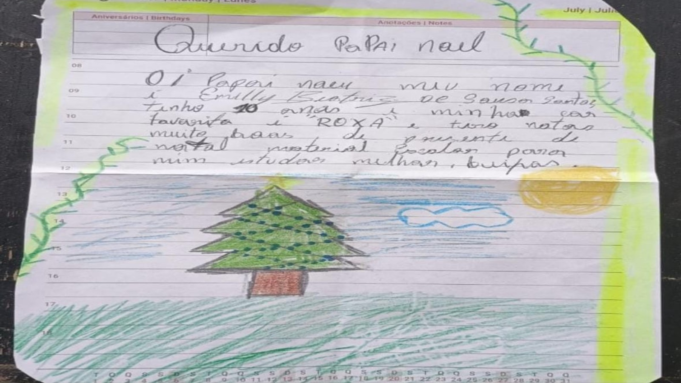 July | Juli
Aniversários | Birthdays
Anotações | Notes
Querido PaPAi noel
08
Oi Papai noeu meu nome
09
é Emilly Beatriz De Souza Santos
tinho 10 anos i minha cor
10
favorita é "ROXA" e tiro notas
muito boas de presente de
11
natal material Escolar para
12
mim estudar melhor, beijos.
13
14
15
16
17
18